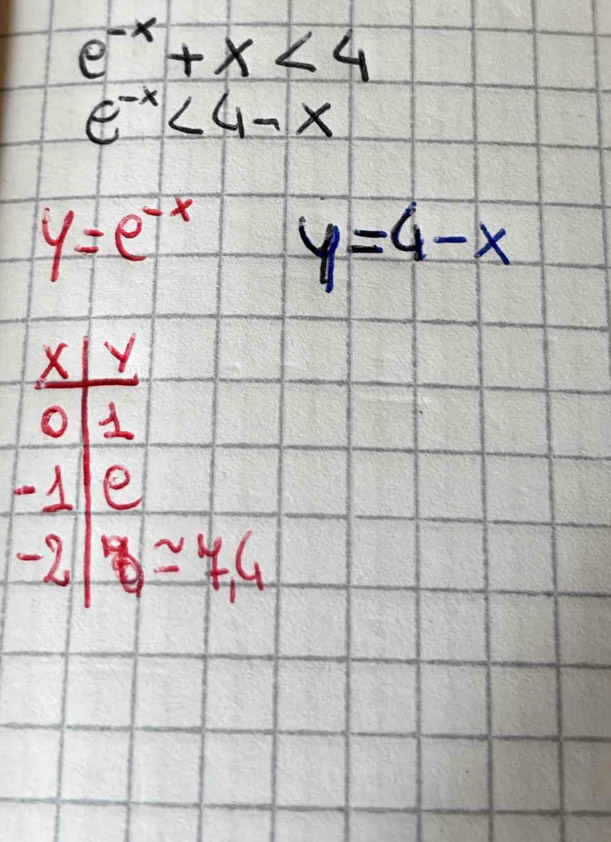 e⁻ˣ + x < 4
e⁻ˣ < 4 - x
y = e⁻ˣ y = 4 - x
x | y
0 | 1
-1 | e
-2 | ≃ 7,4